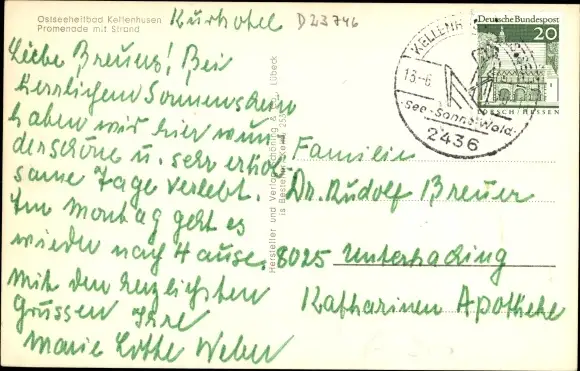 Ostseeheilbad Kellenhusen
Promenade mit Strand
Kurhotel
D23746
Liebe Breuers! Bei
herrlichem Sonnenschein
haben wir hier wun
derschöne u. sehr erhol
same Tage verlebt.
Im Montag geht es
wieder nach Hause.
Mit den herzlichsten
Grüssen Ihre
Marie Lotte Weber
Hersteller und Verlag Schöning & Lübeck
Bestell
KELLENH
18.-6
see-Sonne-Wald
2436
Deutsche Bundespost
20
LORSCH/HESSEN
Familie
Dr. Rudolf Breuer
8025 Unterhaching
Katharinen Apotheke